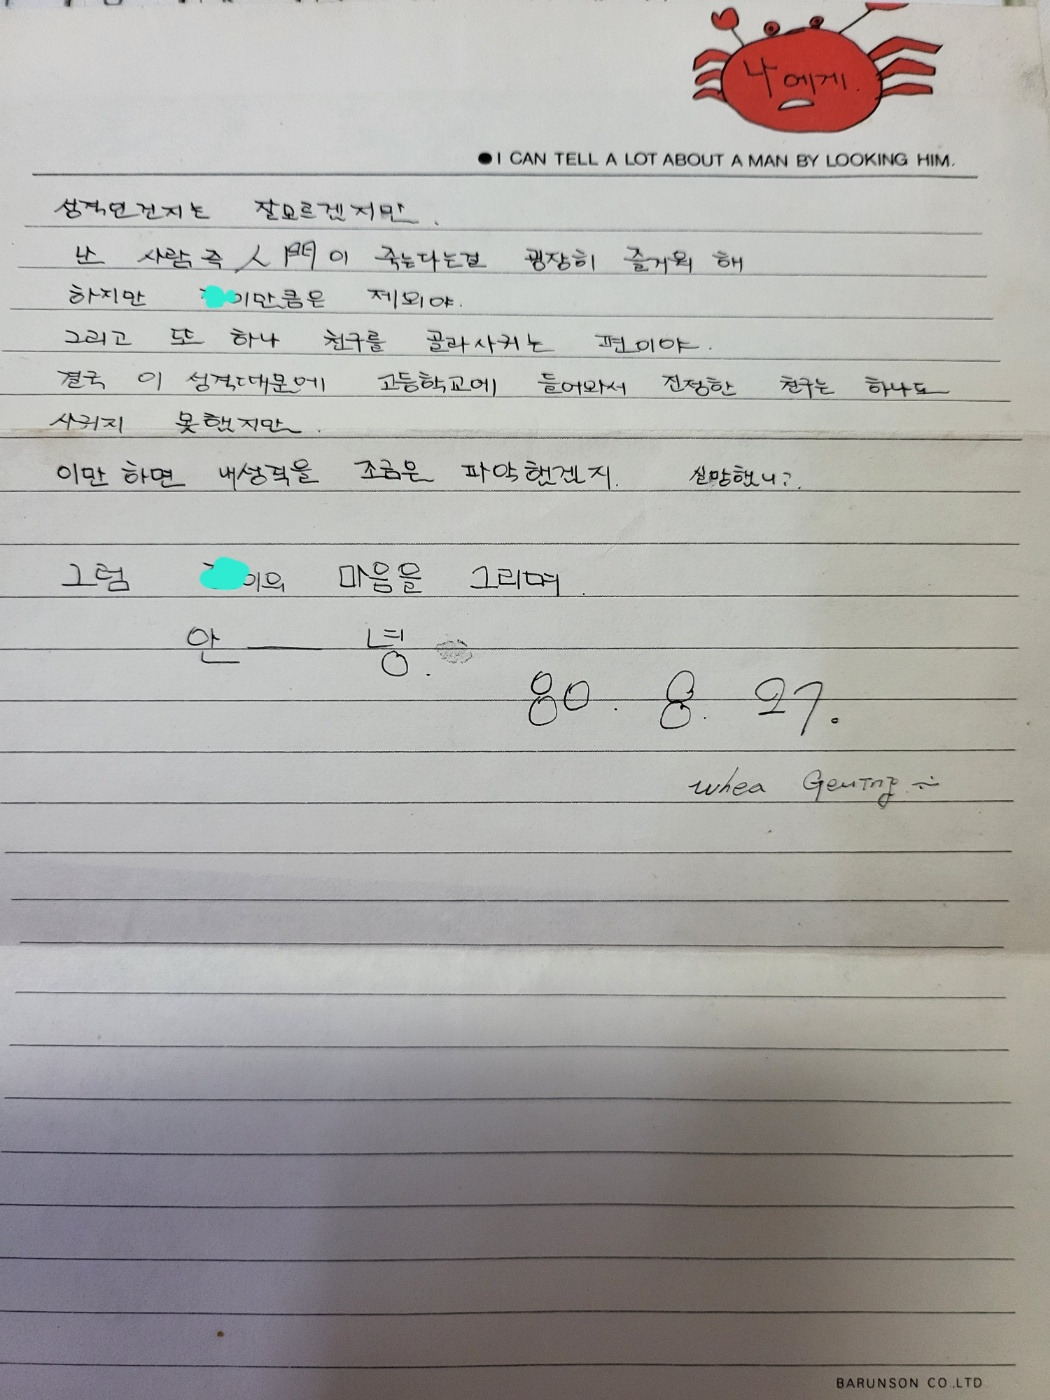 나에게.
●I CAN TELL A LOT ABOUT A MAN BY LOOKING HIM.
성격인건지는 잘모르겐지만.
난 사람 즉 人間이 죽는다는걸 굉장히 즐거워 해
하지만 이만큼은 제외야.
그리고 또 하나 친구를 골라사귀는 편이야.
결국 이 성격때문에 고등학교에 들어와서 진정한 친구는 하나도
사귀지 못했지만.
이만 하면 내성격을 조금은 파악했겐지. 실망했니?
그럼 이의 마음을 그리며.
안── 녕.
80. 8. 27.
whea
BARUNSON CO.,LTD